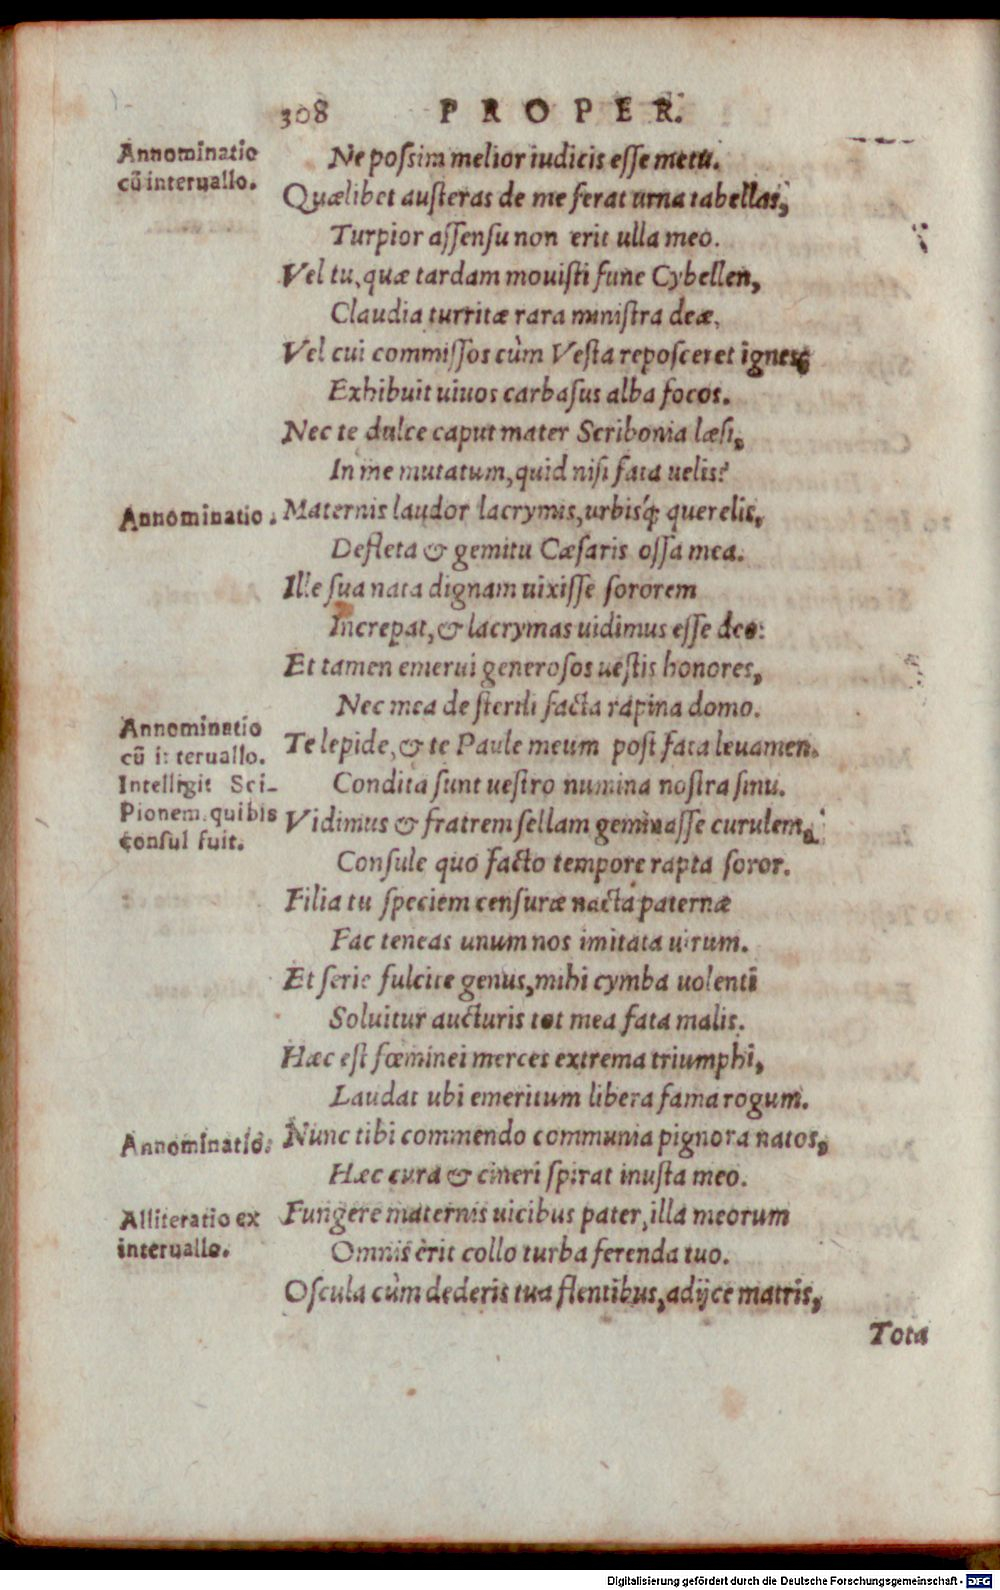 308 PROPER.
Annominatio
cū interuallo.
Ne possim melior iudicis esse metu.
Quælibet austeras de me ferat urna tabellas,
Turpior assensu non erit ulla meo.
Vel tu, quæ tardam mouisti fune Cybellen,
Claudia turritæ rara ministra deæ,
Vel cui commissos cùm Vesta reposceret ignes,
Exhibuit uiuos carbasus alba focos.
Nec te dulce caput mater Scribonia læsi,
In me mutatum, quid nisi fata uelis?
Annominatio.
Maternis laudor lacrymis, urbisq́; querelis,
Defleta & gemitu Cæsaris ossa mea.
Ille sua nata dignam uixisse sororem
Increpat, & lacrymas uidimus esse deo:
Et tamen emerui generosos uestis honores,
Nec mea de sterili facta rapina domo.
Annominatio
cū interuallo.
Intelligit Sci-
Pionem quibis
consul fuit.
Te lepide, & te Paule meum post fata leuamen.
Condita sunt uestro numina nostra sinu.
Vidimus & fratrem sellam geminasse curulem,
Consule quo facto tempore rapta soror.
Filia tu speciem censuræ nacta paternæ
Fac teneas unum nos imitata uirum.
Et serie fulcite genus, mihi cymba uolenti
Soluitur aucturis tot mea fata malis.
Hæc est fœminei merces extrema triumphi,
Laudat ubi emeritum libera fama rogum.
Annominatio.
Nunc tibi commendo communia pignora natos,
Hæc cura & cineri spirat inusta meo.
Alliteratio ex
interuallo.
Fungere maternis uicibus pater, illa meorum
Omnis erit collo turba ferenda tuo.
Oscula cùm dederis tua flentibus, adijce matris,
Tota
Digitalisierung gefördert durch die Deutsche Forschungsgemeinschaft - DFG